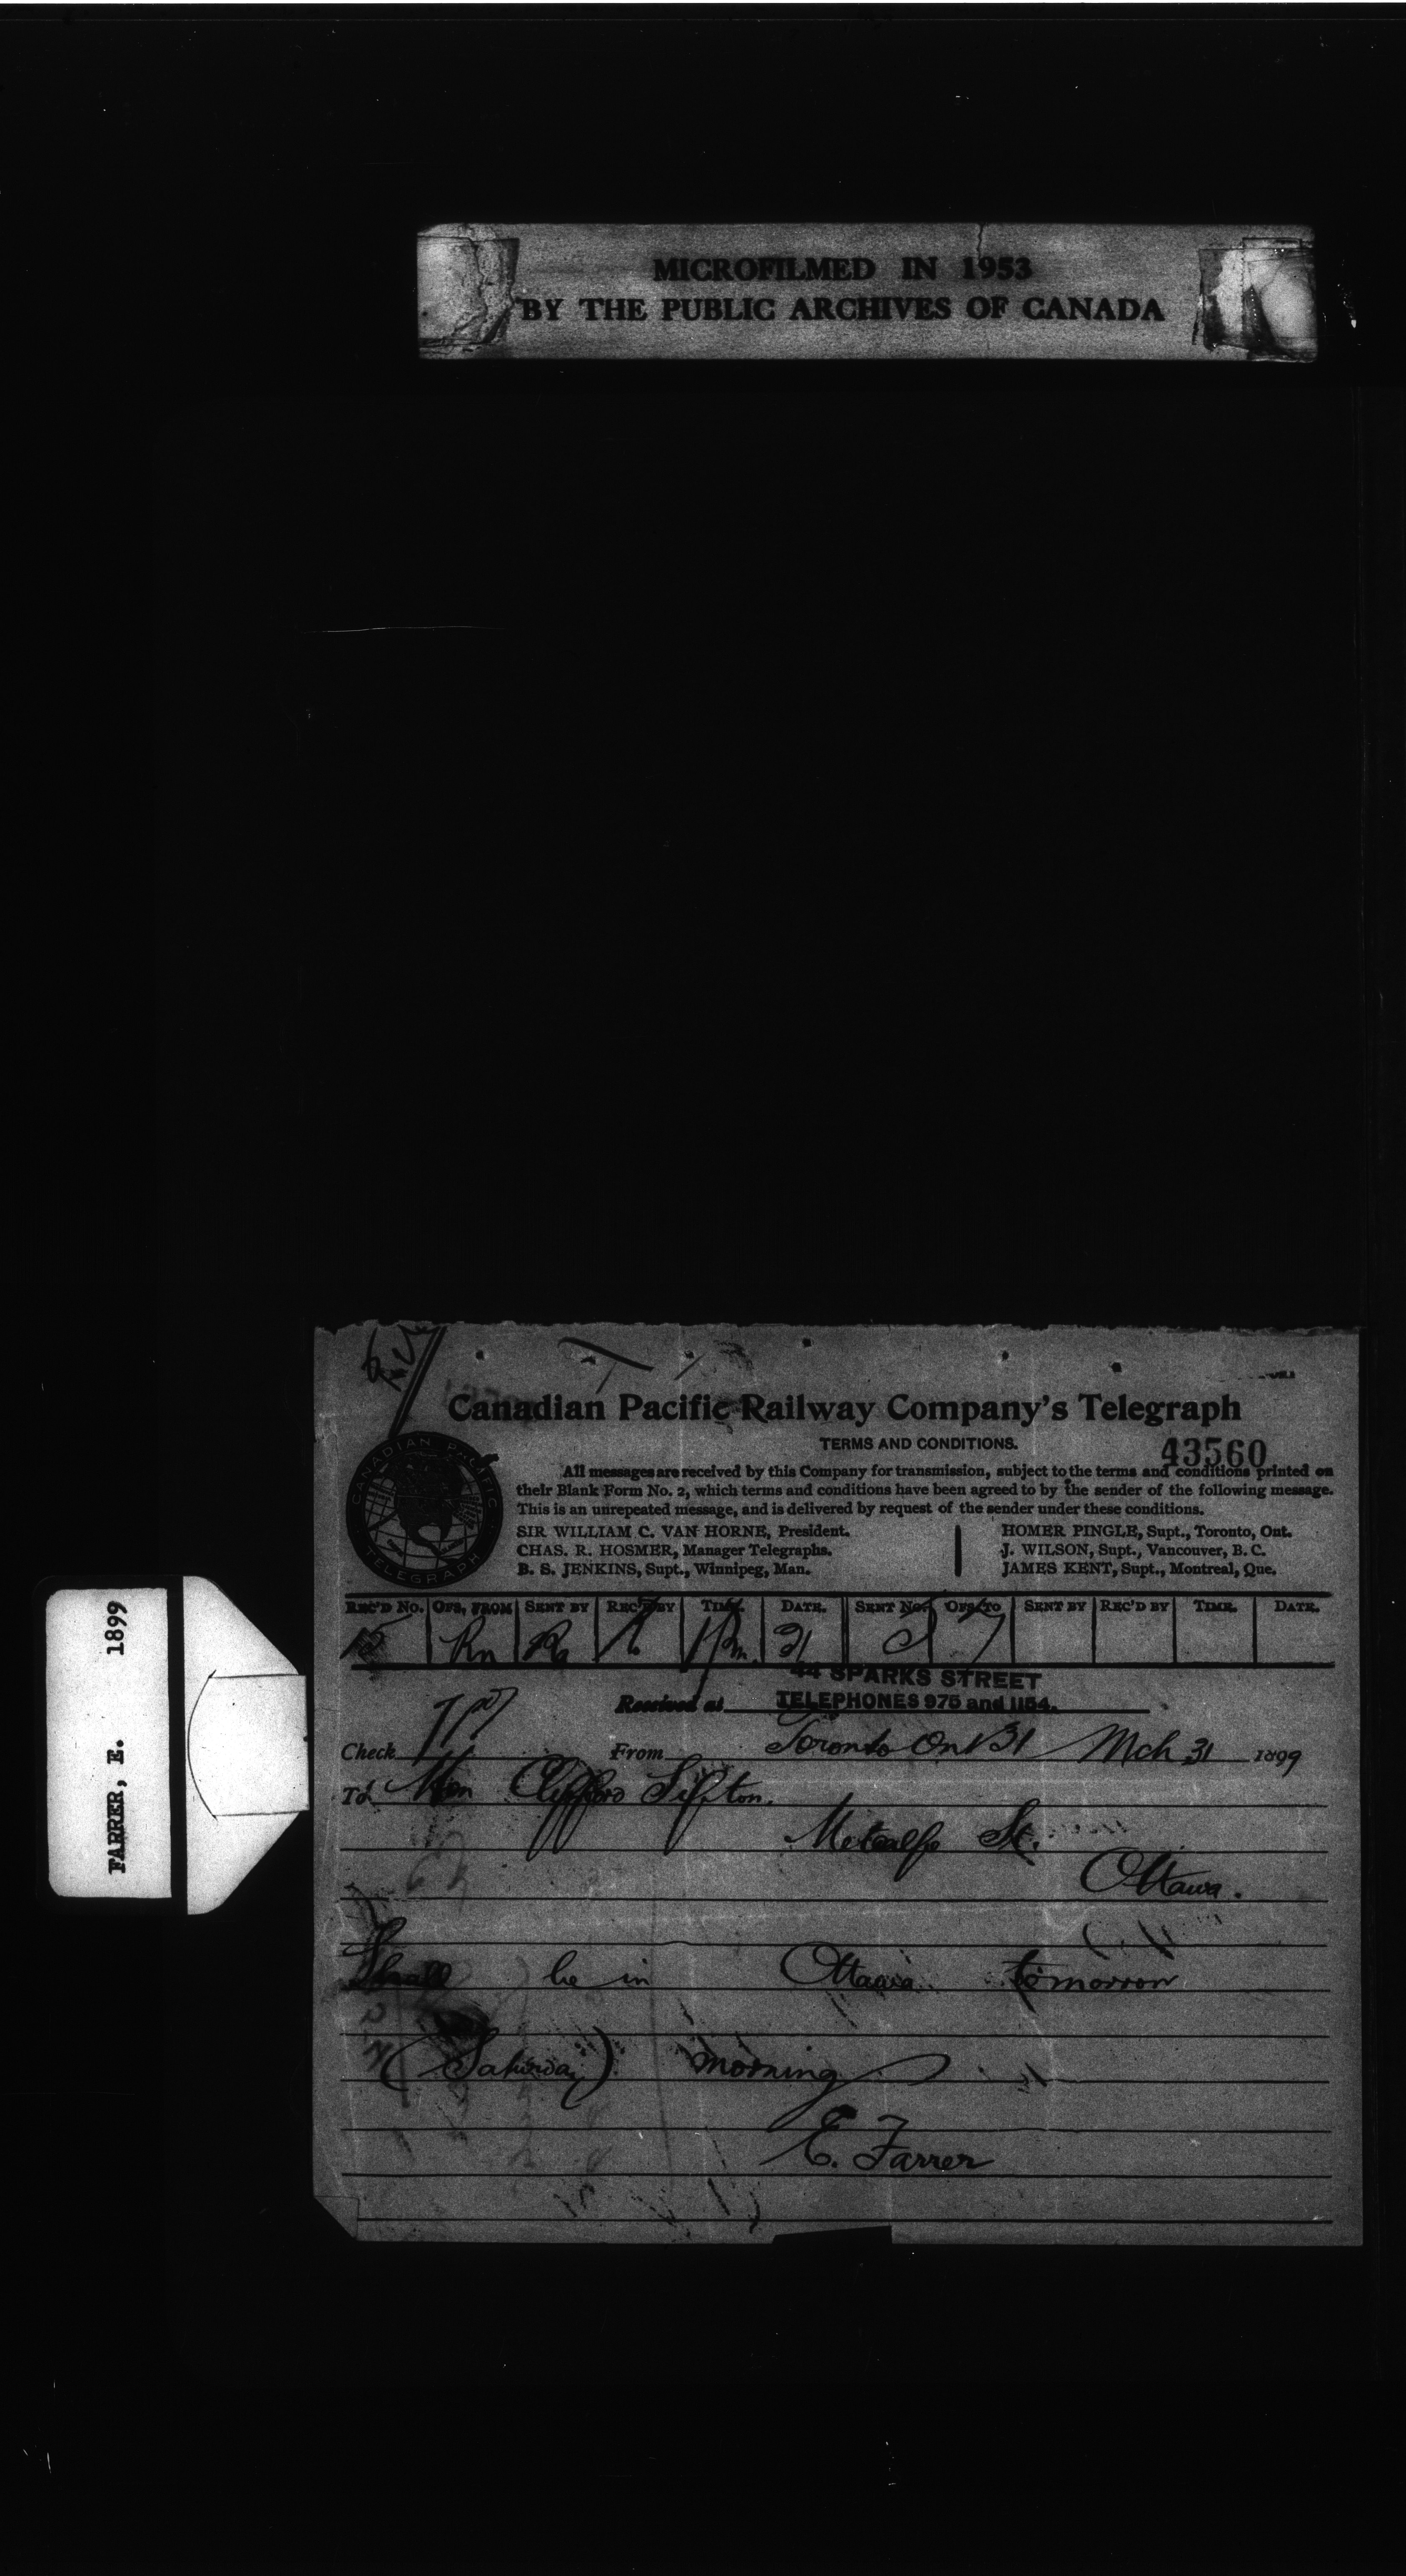 MICROFILMED IN 1953
BY THE PUBLIC ARCHIVES OF CANADA
FARRER, E. 1899
Canadian Pacific Railway Company's Telegraph
TERMS AND CONDITIONS.
43560
All messages are received by this Company for transmission, subject to the terms and conditions printed on
their Blank Form No. 2, which terms and conditions have been agreed to by the sender of the following message.
This is an unrepeated message, and is delivered by request of the sender under these conditions.
SIR WILLIAM C. VAN HORNE, President.
CHAS. R. HOSMER, Manager Telegraphs.
B. S. JENKINS, Supt., Winnipeg, Man.
HOMER PINGLE, Supt., Toronto, Ont.
J. WILSON, Supt., Vancouver, B. C.
JAMES KENT, Supt., Montreal, Que.
CANADIAN PACIFIC
TELEGRAPH
REC'D No. OFS, FROM SENT BY REC'D BY TIME. DATE. SENT No. OFS, TO SENT BY REC'D BY TIME. DATE.
31
44 SPARKS STREET
Received at TELEPHONES 975 and 1154.
Check From Toronto Ont 31 Mch 31 1899
To Hon Clifford Sifton.
Metcalfe St.
Ottawa.
Shall be in Ottawa tomorrow
(Saturday) morning
E. Farrer